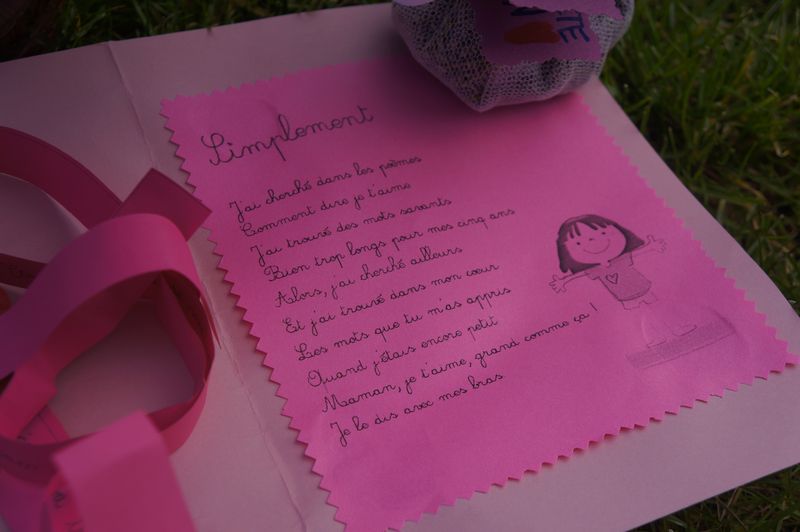 Simplement
J'ai cherché dans les poèmes
Comment dire je t'aime
J'ai trouvé des mots savants
Bien trop longs pour mes cinq ans
Alors, j'ai cherché ailleurs
Et j'ai trouvé dans mon cœur
Les mots que tu m'as appris
Quand j'étais encore petit
Maman, je t'aime, grand comme ça !
Je le dis avec mes bras